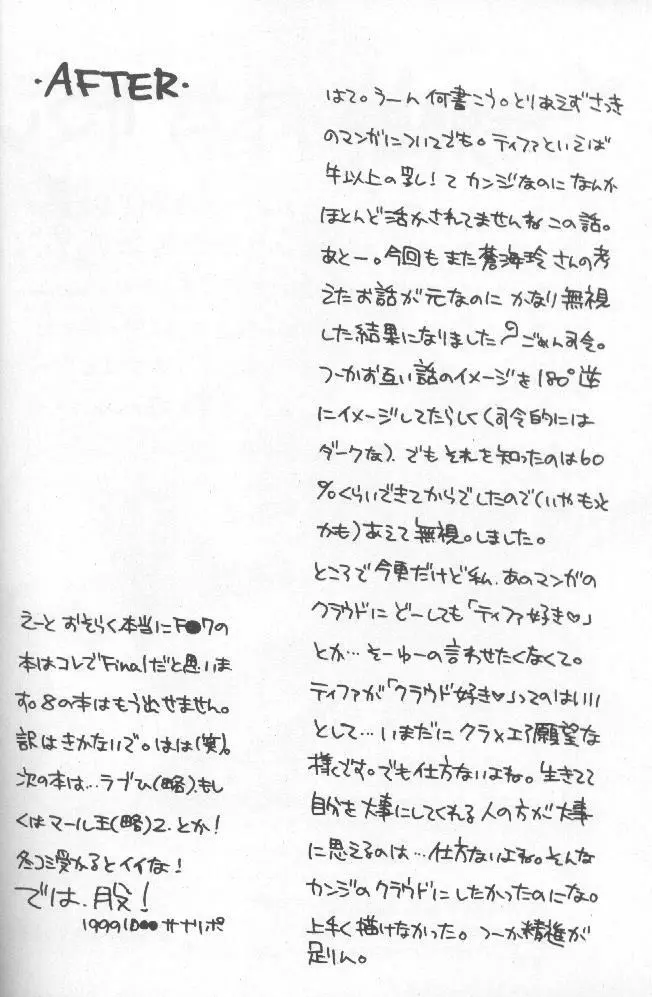 ・AFTER・
はて。うーん 何書こう。とりあえずさっき
のマンガについてでも。ティファといえば
牛以上の乳！て カンジなのに なんか
ほとんど活かされてませんね この話。
あとー。今回もまた蒼海玲さんの考
えたお話が元なのに かなり無視
した結果になりました ごめん司令。
つーかお互い話のイメージを180°逆
にイメージしてたらしく(司令的には
ダークな)。でも それを知ったのは60
%くらいできてからでしたので(いやもっと
かも)あえて無視。しました。
ところで今更だけど私、あのマンガの
クラウドに どーしても「ティファ好き♡」
とか…そーゆーの言わせたくなくて。
ティファが「クラウド好き♡」ってのはいい
として…いまだに クラ×エア願望な
様です。でも仕方ないよね。生きてて
自分を大事にしてくれる人の方が大事
に思えるのは…仕方ないよね。そんな
カンジのクラウドにしたかったのにな。
上手く描けなかった。つーか精進が
足りん。
えーと おそらく本当にF●7の
本はコレでFinalだと思いま
す。8の本はもう出せません。
訳はきかないで。はは(笑)。
次の本は…ラブひ(略)。もし
くはマール王(略)2.とか！
冬コミ受かるとイイな！
では、股！
1999 10●● サナリポ